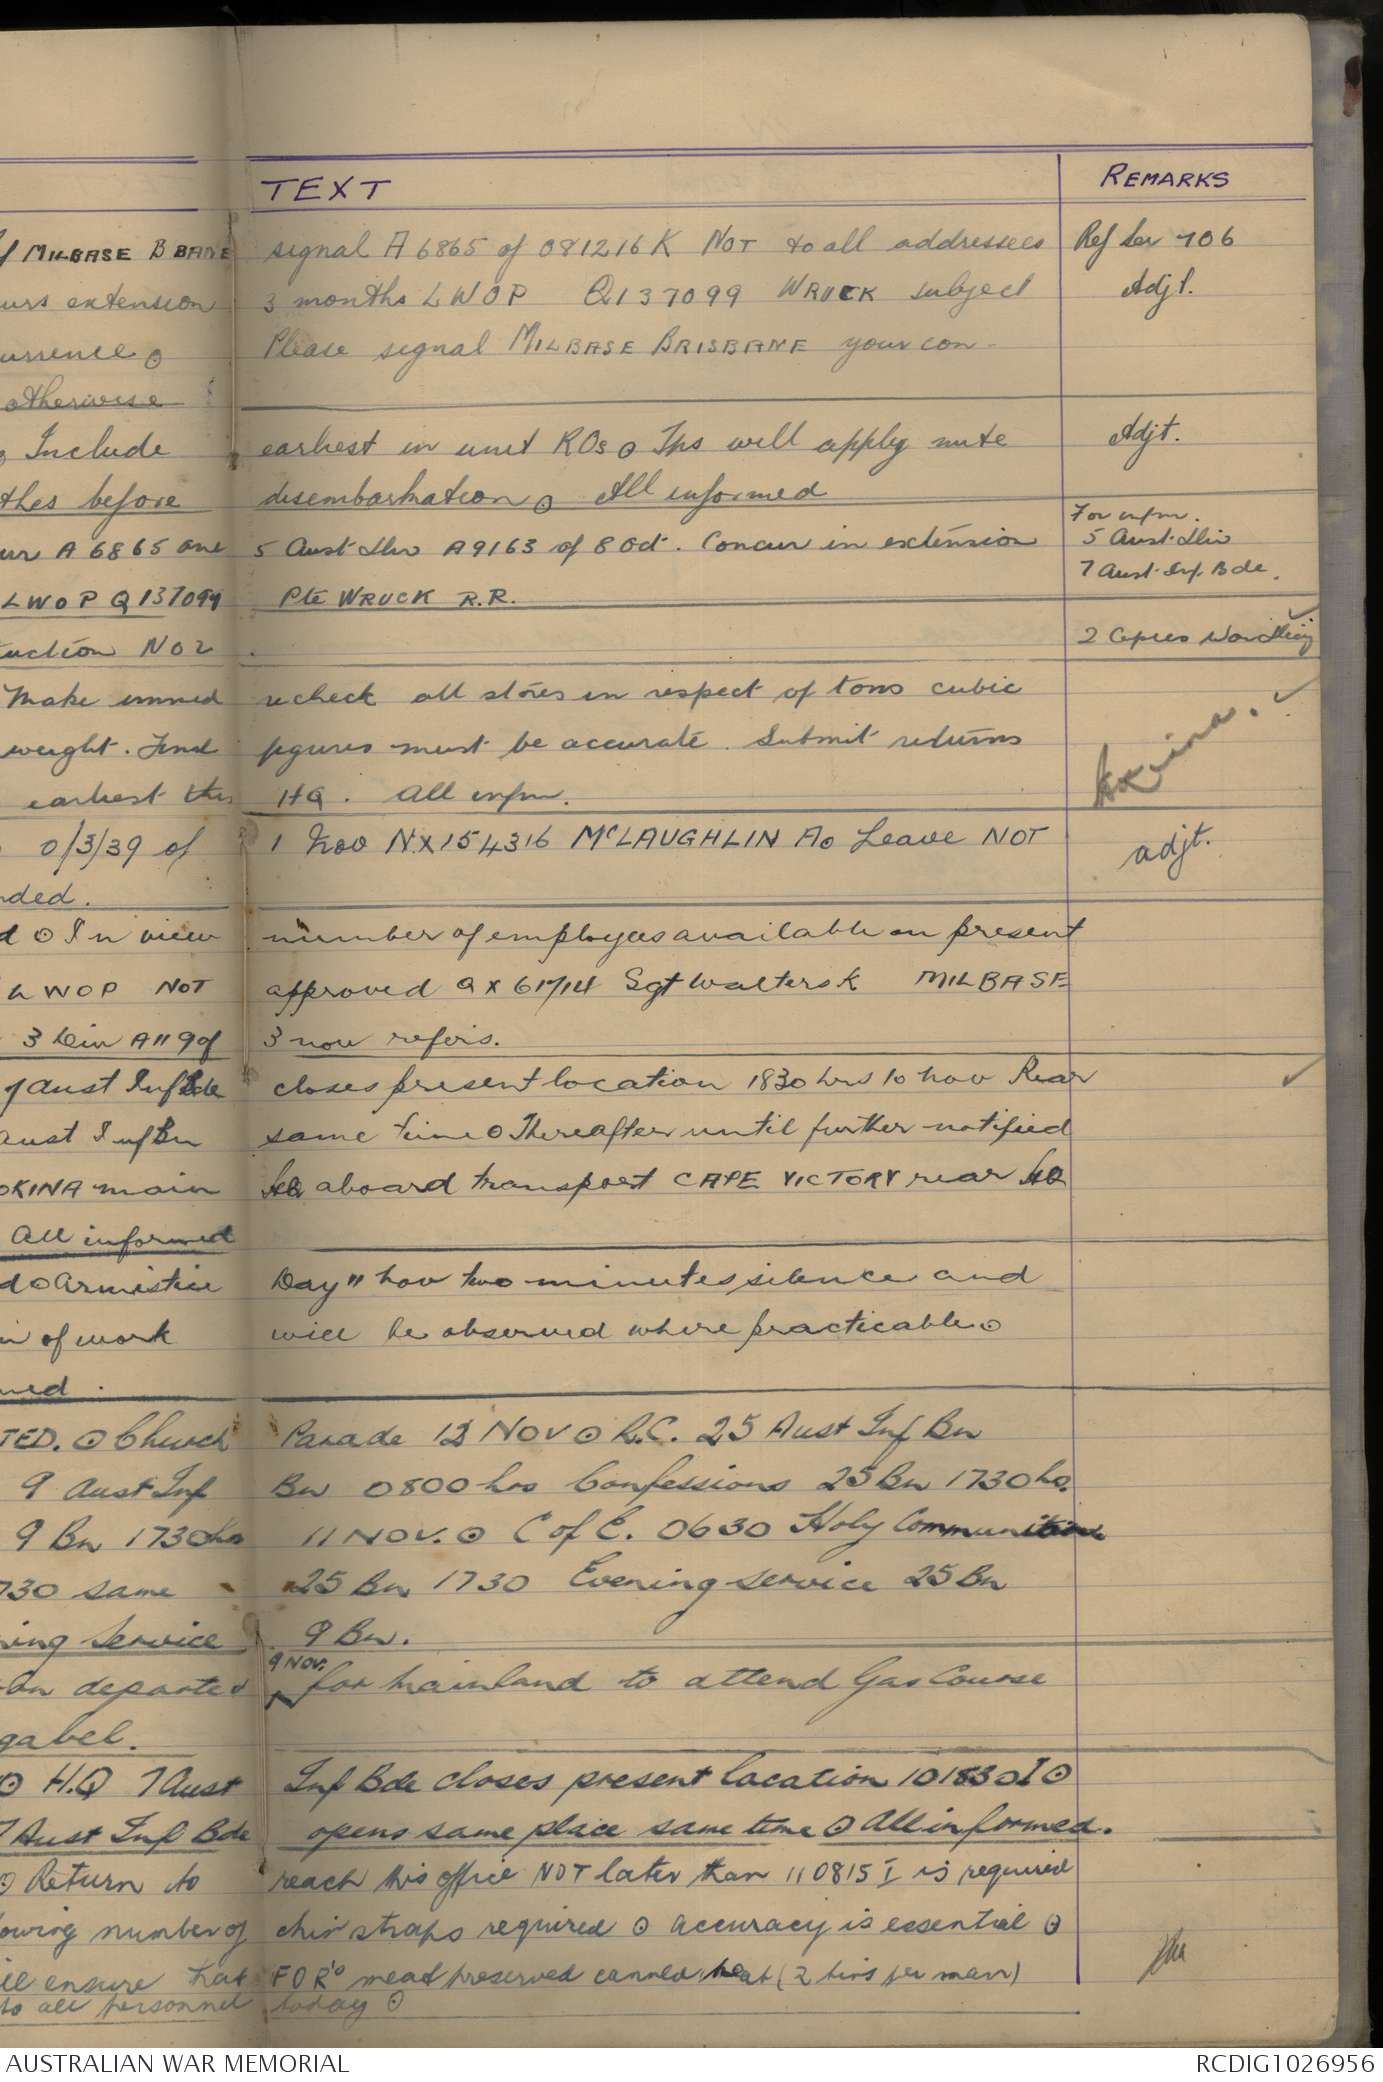 TEXT REMARKS
of MILBASE B BANE signal A 6865 of 081216K NOT to all addressees Ref Ser 706
extension 3 months LWOP Q137099 WRUCK subject Adjt.
urrence ⊙ Please signal MILBASE BRISBANE your con-
otherwise
Include earliest in unit ROs ⊙ Tps will apply Adjt.
thes before disembarkation ⊙ All informed
For infm.
ur A 6865 one 5 Aust Div A9163 of 8 Oct. Concur in extension 5 Aust Div
7 Aust Inf Bde.
LWOP Q137099 Pte WRUCK R.R.
uction No 2 2 Copies
Make immed recheck all stores in respect of tons cubic
weight. figures must be accurate. Submit returns
earliest this HQ. All infm.
0/3/39 of 1 Nov NX154316 McLAUGHLIN A ⊙ Leave NOT adjt.
nded.
d ⊙ In view number of employees available on present
LWOP NOT approved QX61714 Sgt Walters K MILBASE
3 Div A119 of 3 now refers.
7 Aust Inf Bde closes present location 1830 hrs 10 Nov Rear
Aust Inf Bn same time ⊙ Thereafter until further notified
OKINA main HQ aboard transport CAPE VICTORY rear HQ
All informed
d ⊙ Armistice Day 11 Nov two minutes silence and
n of work will be observed where practicable ⊙
med.
TED. ⊙ Church Parade 12 NOV ⊙ R.C. 25 Aust Inf Bn
9 Aust Inf Bn 0800 hrs Confessions 25 Bn 1730 hrs.
9 Bn 1730 hrs 11 NOV. ⊙ C of E. 0630 Holy Communion
730 same 25 Bn 1730 Evening service 25 Bn
ning Service 9 Bn.
9 NOV.
departed for mainland to attend Gas Course
gabel.
⊙ H.Q 7 Aust Inf Bde closes present location 101830I ⊙
7 Aust Inf Bde opens same place same time ⊙ All informed.
⊙ Return to reach this office NOT later than 110815 I is required
lowing number of chin straps required ⊙ accuracy is essential ⊙
ill ensure that FOR'D meat preserved canned meat (2 tins per man)
to all personnel today ⊙
AUSTRALIAN WAR MEMORIAL RCDIG1026956